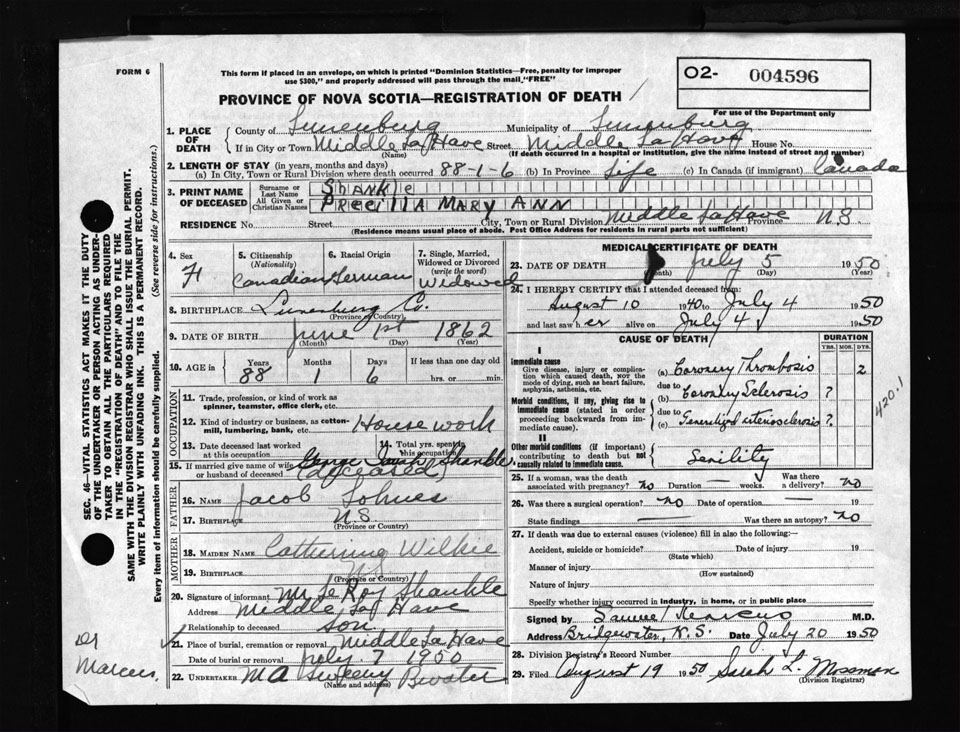 FORM 6
This form if placed in an envelope, on which is printed "Dominion Statistics—Free, penalty for improper
use $300," and properly addressed will pass through the mail "FREE"
O2- 004596
For use of the Department only
PROVINCE OF NOVA SCOTIA—REGISTRATION OF DEATH
1. PLACE OF DEATH
County of Lunenburg Municipality of Lunenburg
If in City or Town Middle LaHave Street Middle LaHave House No.
(Name) (If death occurred in a hospital or institution, give the name instead of street and number)
2. LENGTH OF STAY (in years, months and days)
(a) In City, Town or Rural Division where death occurred 88-1-6 (b) In Province Life (c) In Canada (if immigrant) Canada
3. PRINT NAME OF DECEASED
Surname or Last Name SHANKLE
All Given or Christian Names PRECILLA MARY ANN
RESIDENCE No. Street City, Town or Rural Division Middle LaHave N.S
(Residence means usual place of abode. Post Office Address for residents in rural parts not sufficient)
4. Sex F
5. Citizenship (Nationality) Canadian
6. Racial Origin German
7. Single, Married, Widowed or Divorced (write the word) Widowed
8. BIRTHPLACE Lunenburg Co.
(Province or Country)
9. DATE OF BIRTH June 1st 1862
(Month) (Day) (Year)
10. AGE in Years 88 Months 1 Days 6 If less than one day old
hrs. or min.
OCCUPATION
11. Trade, profession, or kind of work as spinner, teamster, office clerk, etc.
12. Kind of industry or business, as cotton-mill, lumbering, bank, etc. Housework
13. Date deceased last worked at this occupation
14. Total yrs. spent in this occupation
15. If married give name of wife or husband of deceased George Shankle (deceased)
FATHER
16. NAME Jacob
17. BIRTHPLACE N.S.
(Province or Country)
MOTHER
18. MAIDEN NAME Wilkie
19. BIRTHPLACE N.S
(Province or Country)
20. Signature of informant Mr LeRoy Shankle
Address Middle La Have
Relationship to deceased son.
21. Place of burial, cremation or removal Middle LaHave
Date of burial or removal July 7 1950
22. UNDERTAKER M A Sweeny B'water
(Name and address)
MEDICAL CERTIFICATE OF DEATH
23. DATE OF DEATH July 5 1950
(Month) (Day) (Year)
24. I HEREBY CERTIFY that I attended deceased from:
August 10 1940 to July 4 1950
and last saw her alive on July 4 1950
CAUSE OF DEATH
DURATION
YRS. MOS. DYS.
I
Immediate cause
Give disease, injury or complication which caused death, not the mode of dying, such as heart failure, asphyxia, asthenia, etc.
(a) Coronary Thrombosis 2
due to
Morbid conditions, if any, giving rise to immediate cause (stated in order proceeding backwards from immediate cause).
(b) Coronary Sclerosis ?
due to
(c) Generalized arteriosclerosis ?
420.1
II
Other morbid conditions (if important) contributing to death but not causally related to immediate cause.
Senility
25. If a woman, was the death associated with pregnancy? no Duration — weeks. Was there a delivery? no
26. Was there a surgical operation? no Date of operation 19
State findings — Was there an autopsy? no
27. If death was due to external causes (violence) fill in also the following:—
Accident, suicide or homicide? Date of injury 19
(State which)
Manner of injury
(How sustained)
Nature of injury
Specify whether injury occurred in industry, in home, or in public place
Signed by Marcus M.D.
Address Bridgewater, N.S. Date July 20 1950
28. Division Registry's Record Number
29. Filed August 19 1950 Sarah L. Mossman
(Division Registrar)
SEC. 46—VITAL STATISTICS ACT MAKES IT THE DUTY
OF THE UNDERTAKER OR PERSON ACTING AS UNDER-
TAKER TO OBTAIN ALL THE PARTICULARS REQUIRED
IN THE "REGISTRATION OF DEATH" AND TO FILE THE
SAME WITH THE DIVISION REGISTRAR WHO SHALL ISSUE THE BURIAL PERMIT.
WRITE PLAINLY WITH UNFADING INK. THIS IS A PERMANENT RECORD.
Every item of information should be carefully supplied. (See reverse side for instructions.)
Dr
Marcus.